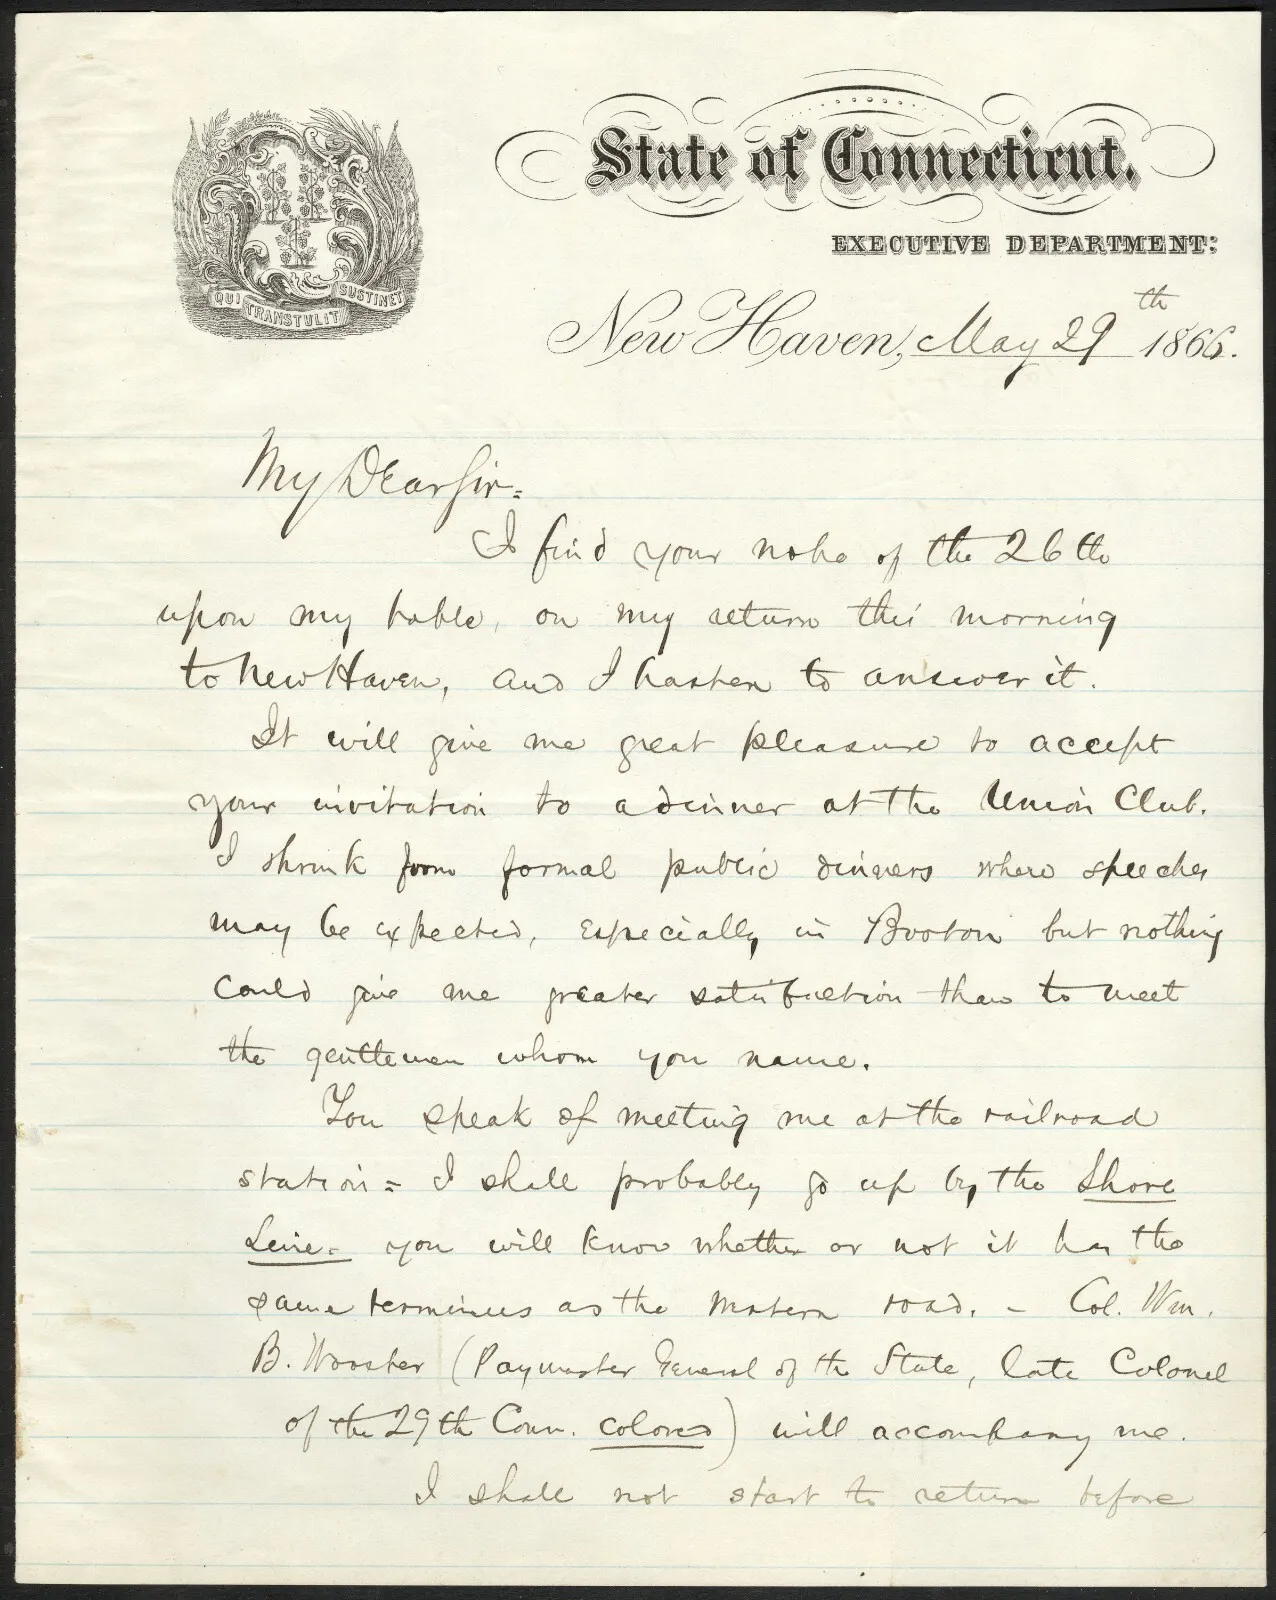 State of Connecticut.
EXECUTIVE DEPARTMENT:
QUI TRANSTULIT SUSTINET
New Haven, May 29th 1866.
My Dear Sir =
I find your note of the 26th
upon my table, on my return this morning
to New Haven, and I hasten to answer it.
It will give me great pleasure to accept
your invitation to a dinner at the Union Club.
I shrink from formal public dinners where speeches
may be expected, especially in Boston but nothing
could give me greater satisfaction than to meet
the gentlemen whom you name.
You speak of meeting me at the railroad
station = I shall probably go up by the Shore
Line = you will know whether or not it has the
same terminus as the Western road. – Col. Wm.
B. Wooster (Paymaster General of the State, late Colonel
of the 29th Conn. colored) will accompany me.
I shall not start to return before